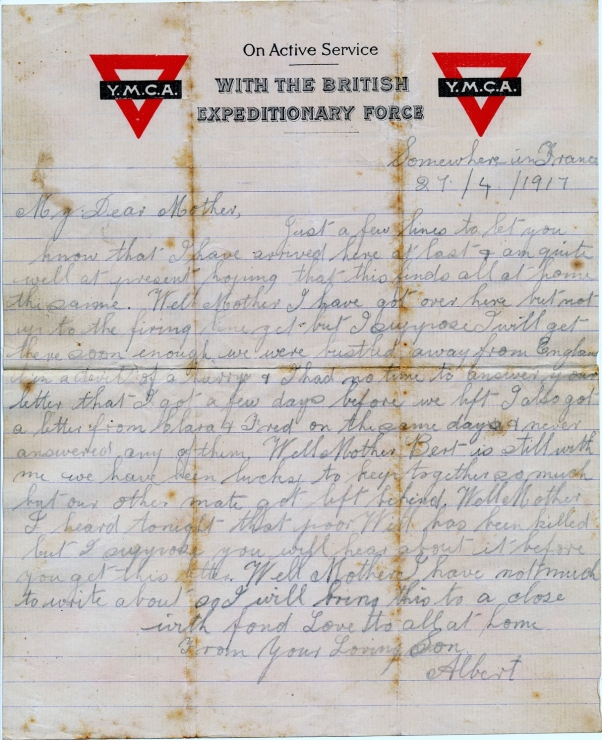 On Active Service
Y.M.C.A.
WITH THE BRITISH
EXPEDITIONARY FORCE
Y.M.C.A.
Somewhere in France
27/4/1917
My Dear Mother,
Just a few lines to let you
know that I have arrived here at last & am quite
well at present hoping that this finds all at home
the same. Well Mother I have got over here but not
up to the firing line yet but I suppose I will get
there soon enough we were bustled away from England
in a of a hurry & I had no time to answer your
letter that I got a few days before we left I also got
a letter from Clara & Fred on the same days & never
answered any of them Well Mother Bert is still with
me we have been lucky to keep together so much
but our other mate got left behind. Well Mother
I heard tonight that poor has been killed
but I suppose you will hear about it before
you get this letter. Well Mother I have not much
to write about so I will bring this to a close
with fond Love to all at home
From Your Loving Son
Albert